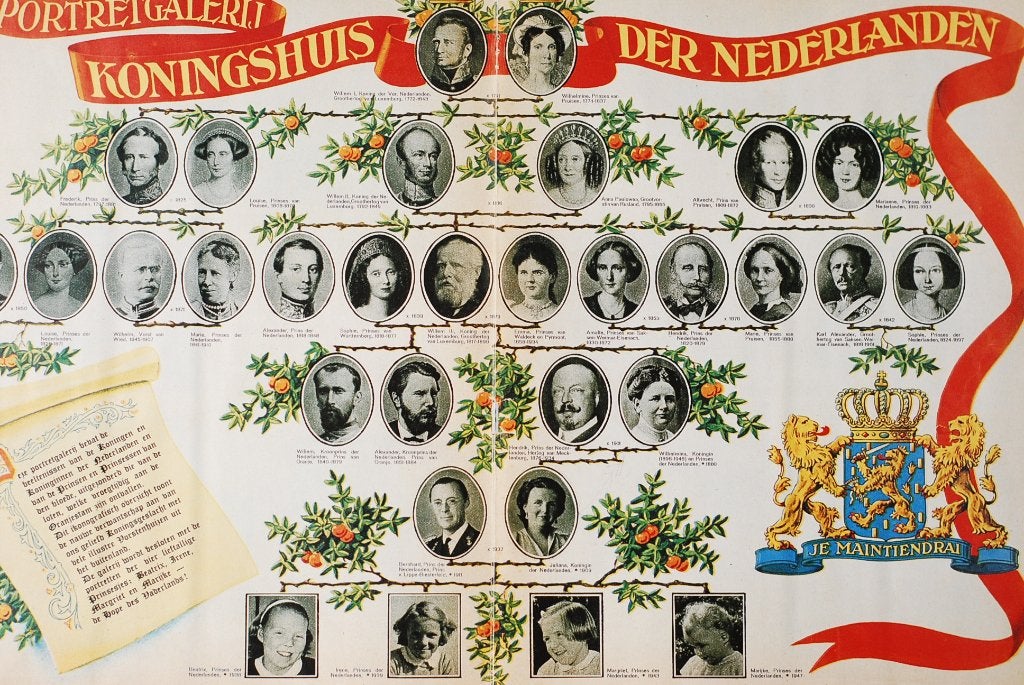 PORTRETGALERIJ
KONINGSHUIS
DER NEDERLANDEN
Willem I, Koning der Ver. Nederlanden,
Groothertog van Luxemburg, 1772-1843
Wilhelmine, Prinses van
Pruisen, 1774-1837
Frederik, Prins der
Nederlanden,
× 1825
Louise, Prinses van
Pruisen,
Willem II, Koning der Ne-
derlanden, Groothertog van
Luxemburg, 1792-1849
× 1816
Anna Paulowna, Grootvor-
stin van Rusland, 1795-1865
Albrecht, Prins van
Pruisen, 1809-1872
× 1830
Marianne, Prinses der
Nederlanden, 1810-1883
× 1850
Louise, Prinses der
Nederlanden,
Wilhelm, Vorst van
Wied, 1845-1907
× 1871
Marie, Prinses der
Nederlanden,
1841-1910
Alexander, Prins der
Nederlanden, 1818-1848
Sophie, Prinses van
Württemberg, 1818-1877
× 1839
Willem III, Koning der
Nederlanden, Groothertog
van Luxemburg, 1817-1890
× 1879
Emma, Prinses van
Waldeck en Pyrmont,
1858-1934
Amalia, Prinses van Sak-
sen-Weimar-Eisenach,
1830-1872
× 1853
Hendrik, Prins der
Nederlanden,
1820-1879
× 1878
Marie, Prinses van
Pruisen, 1855-1888
Karl Alexander, Groot-
hertog van Saksen-Wei-
mar-Eisenach, 1818-1901
× 1842
Sophie, Prinses der
Nederlanden, 1824-1897
Willem, Kroonprins
der Nederlanden, Prins van
Oranje, 1840-1879
Alexander, Kroonprins der
Nederlanden, Prins van
Oranje, 1851-1884
Hendrik, Prins der Neder-
landen, Hertog van Meck-
lenburg, 1876-1934
× 1901
Wilhelmina, Koningin
(1898-1948) en Prinses
der Nederlanden, * 1880
Bernhard, Prins der
Nederlanden, Prins
v. Lippe-Biesterfeld, * 1911
× 1937
Juliana, Koningin
der Nederlanden, * 1909
Beatrix, Prinses der
Nederlanden, * 1938
Irene, Prinses der
Nederlanden, * 1939
Margriet, Prinses der
Nederlanden, * 1943
Marijke, Prinses der
Nederlanden, * 1947
portretgalerij bevat de
beeltenissen van de Koningen en
Koninginnen der Nederlanden en
van de Prinsen en Prinsessen van
den bloede, uitgezonderd die aan de
loten, welke vroegtijdig aan de
Oranjestam zijn ontvallen.
Dit ikonografisch overzicht toont
de nauwe verwantschap aan van
ons geliefd Koningsgeslacht met
vele illuster Vorstenhuizen uit
het buitenland.
De galerij wordt besloten met de
portretten der vier lieftallige
Prinsesjes: Beatrix, Irene,
Margriet en Marijke —
de Hope des Vaderlands!
JE MAINTIENDRAI